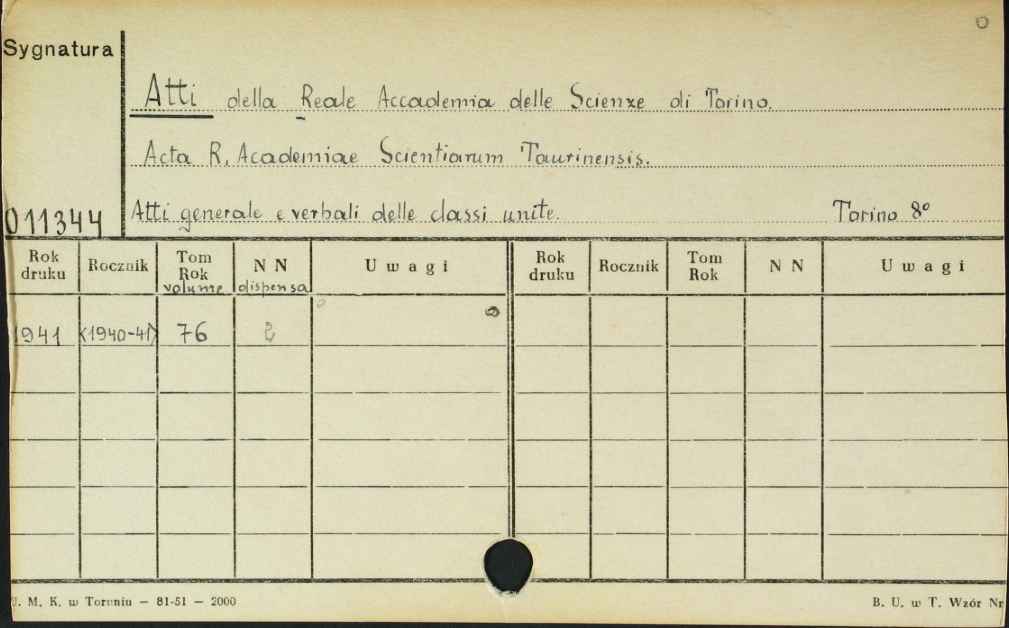 Sygnatura
Atti della Reale Accademia delle Scienze di Torino.
Acta R. Academiae Scientiarum Taurinensis.
011344 Atti generale e verbali delle classi unite. Torino 8º
Rok druku Rocznik Tom Rok volume N N dispensa Uwagi Rok druku Rocznik Tom Rok N N Uwagi
1941 <1940-41> 76 2
U. M. K. w Toruniu — 81-51 — 2000 B. U. w T. Wzór Nr